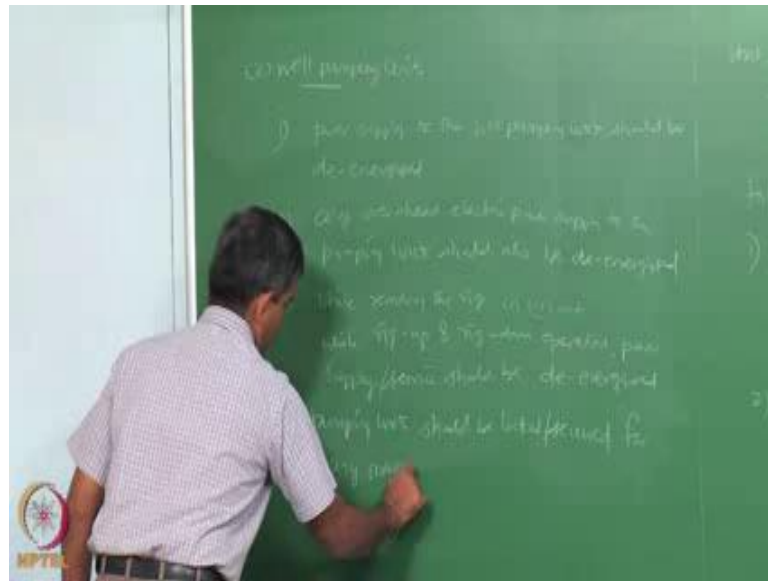 (2) Well pumping Unit
1) power supply to the well pumping unit should be
de-energised
any overhead electric power supply to the
pumping unit should also be de-energised
while sending the rig
while rig-up & rig-down operation, power
supply/service should be de-energised
pumping unit should be locked/secured for
any
1)
2)
NPTEL